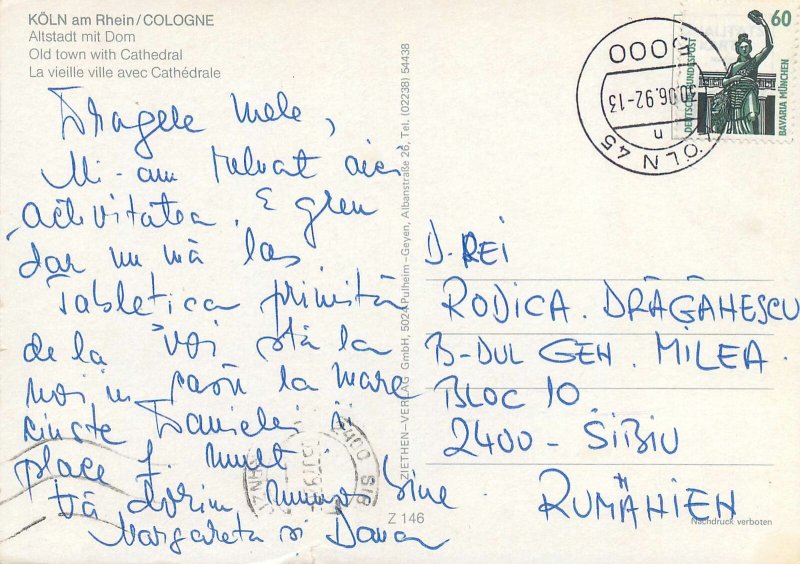 KÖLN am Rhein/COLOGNE
Altstadt mit Dom
Old town with Cathedral
La vieille ville avec Cathédrale
Dragele mele,
Mi-am reluat aici
activitatea. E greu
dar nu mă las
Tabletica primită
de la voi stă la
noi în la mare
cinste Danielei îi
place f. mult.
Vă dorim numai bine
Margareta si Dana
ZIETHEN-VERLAG GmbH, 5024 Pulheim-Geyen, Albanstraße 26, Tel. (02238) 54438
Z 146
5000
30.06.92-13
n
KÖLN 45
60
DEUTSCHE BUNDESPOST
BAVARIA MÜNCHEN
D.REI
RODICA. DRĂGĂNESCU
B-DUL GEN. MILEA.
BLOC 10
2400 - SIBIU
RUMÄNIEN
Nachdruck verboten
2400 SIB